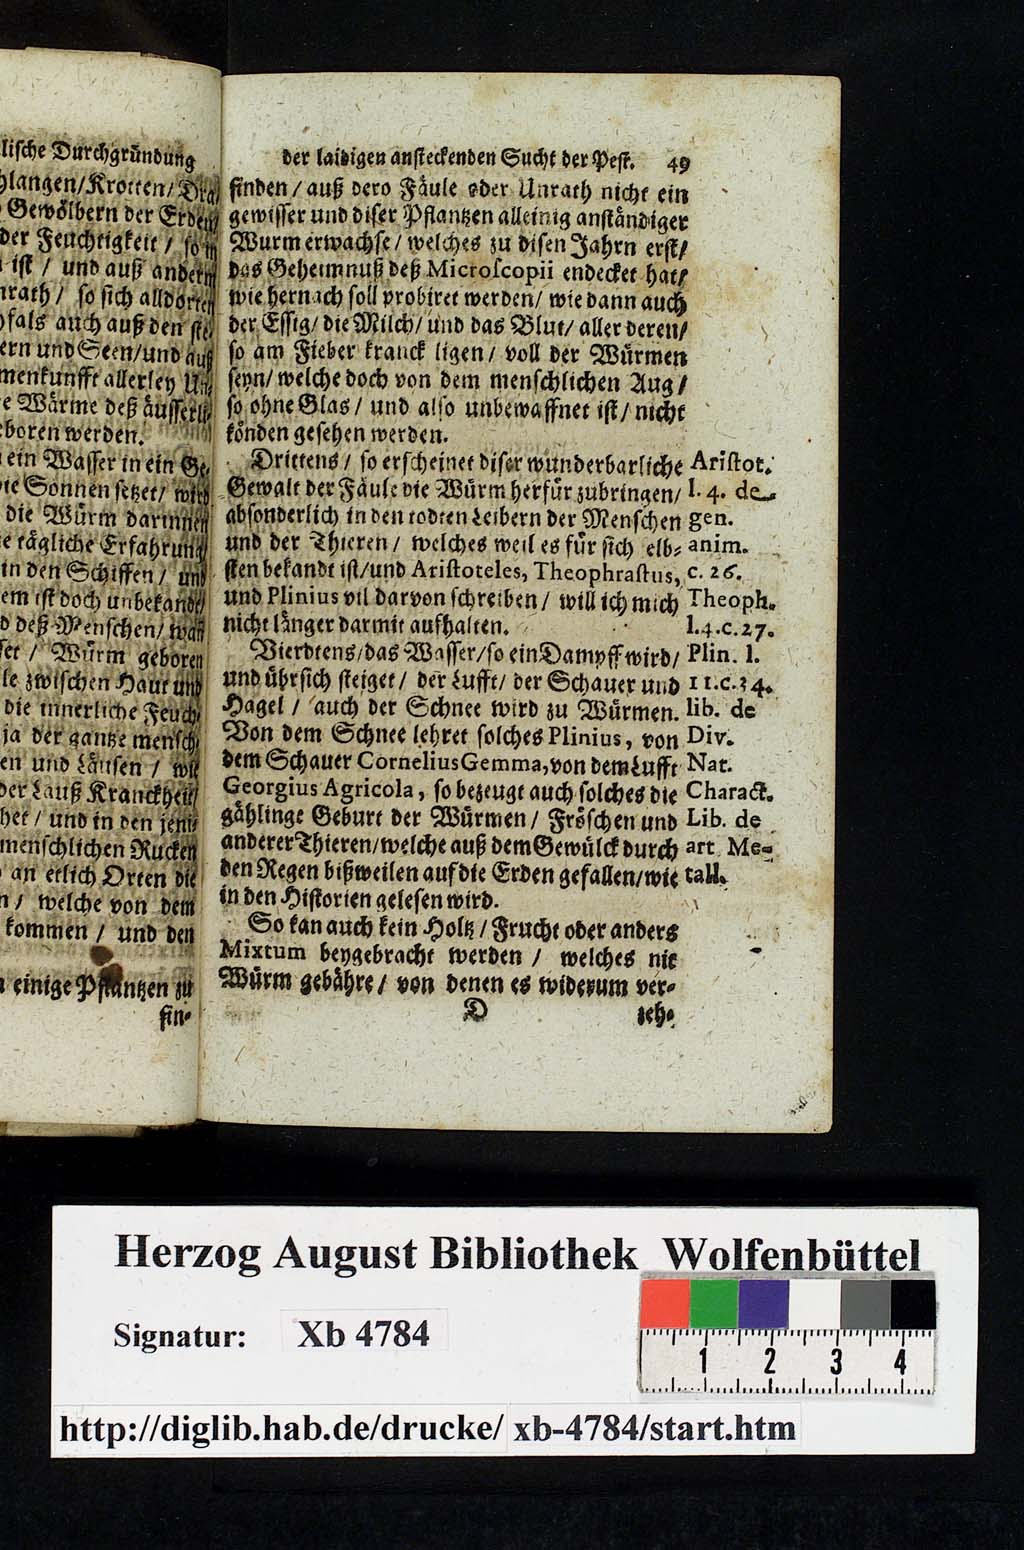 lische Durchgründung
hlangen/Krotten/Dra
Gewölbern der Erden
der Feuchtigkeit / so in
ist / und auß andern
nrath / so sich alldorten
fals auch auß den ste
ern und Seen/und auß
menkunfft allerley Un
e Wärme deß äusserli
boren werden.
ein Wasser in ein Ge
ie Sonnen setzet/ wird
die Würm darinnen
e tägliche Erfahrung
in den Schiffen / und
em ist doch unbekandt/
d deß Menschen/ wañ
set / Würm geboren
le zwischen Haut und
die innerliche Feuch
ja der gantze mensch
en und Läusen / wie
der Lauß Kranckheit/
het / und in den jeni
menschlichen Rucken
an etlich Orten die
n / welche von dem
kommen / und den
einige Pflantzen zu
fin-
der laidigen ansteckenden Sucht der Pest. 49
finden / auß dero Fäule oder Unrath nicht ein
gewisser und diser Pflantzen alleinig anständiger
Wurm erwachse / welches zu disen Jahrn erst /
das Geheimnuß deß Microscopii endecket hat /
wie hernach soll probiret werden / wie dann auch
der Essig / die Milch / und das Blut / aller deren /
so am Fieber kranck ligen / voll der Würmen
seyn / welche doch von dem menschlichen Aug /
so ohne Glas / und also unbewaffnet ist / nicht
könden gesehen werden.
Drittens / so erscheinet diser wunderbarliche
Gewalt der Fäule die Würm herfür zubringen /
absonderlich in den todten Leibern der Menschen
und der Thieren / welches weil es für sich selb-
sten bekandt ist / und Aristoteles, Theophrastus,
und Plinius vil darvon schreiben / will ich mich
nicht länger darmit aufhalten.
Vierdtens / das Wasser / so ein Dampff wird /
und übrsich steiget / der Lufft / der Schauer und
Hagel / auch der Schnee wird zu Würmen.
Von dem Schnee lehret solches Plinius, von
dem Schauer Cornelius Gemma, von dem Lufft
Georgius Agricola, so bezeugt auch solches die
gählinge Geburt der Würmen / Fröschen und
anderer Thieren / welche auß dem Gewülck durch
den Regen bißweilen auf die Erden gefallen / wie
in den Historien gelesen wird.
So kan auch kein Holtz / Frucht oder anders
Mixtum beygebracht werden / welches nie
Würm gebähre / von denen es widerum ver-
D zeh-
Aristot.
l. 4. de
gen.
anim.
c. 26.
Theoph.
l. 4. c. 27.
Plin. l.
11. c. 34.
lib. de
Div.
Nat.
Charact.
Lib. de
art Me-
tall.
Herzog August Bibliothek Wolfenbüttel
Signatur: Xb 4784
1 2 3 4
http://diglib.hab.de/drucke/ xb-4784/start.htm